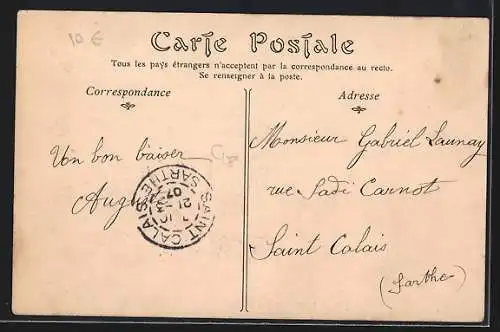 10 €
Carte Postale
Tous les pays étrangers n'acceptent par la correspondance au recto.
Se renseigner à la poste.
Correspondance
Adresse
Un bon baiser
Monsieur Gabriel Launay
rue Sadi Carnot
Saint Calais
(Sarthe)
SAINT CALAIS
SARTHE
21
07